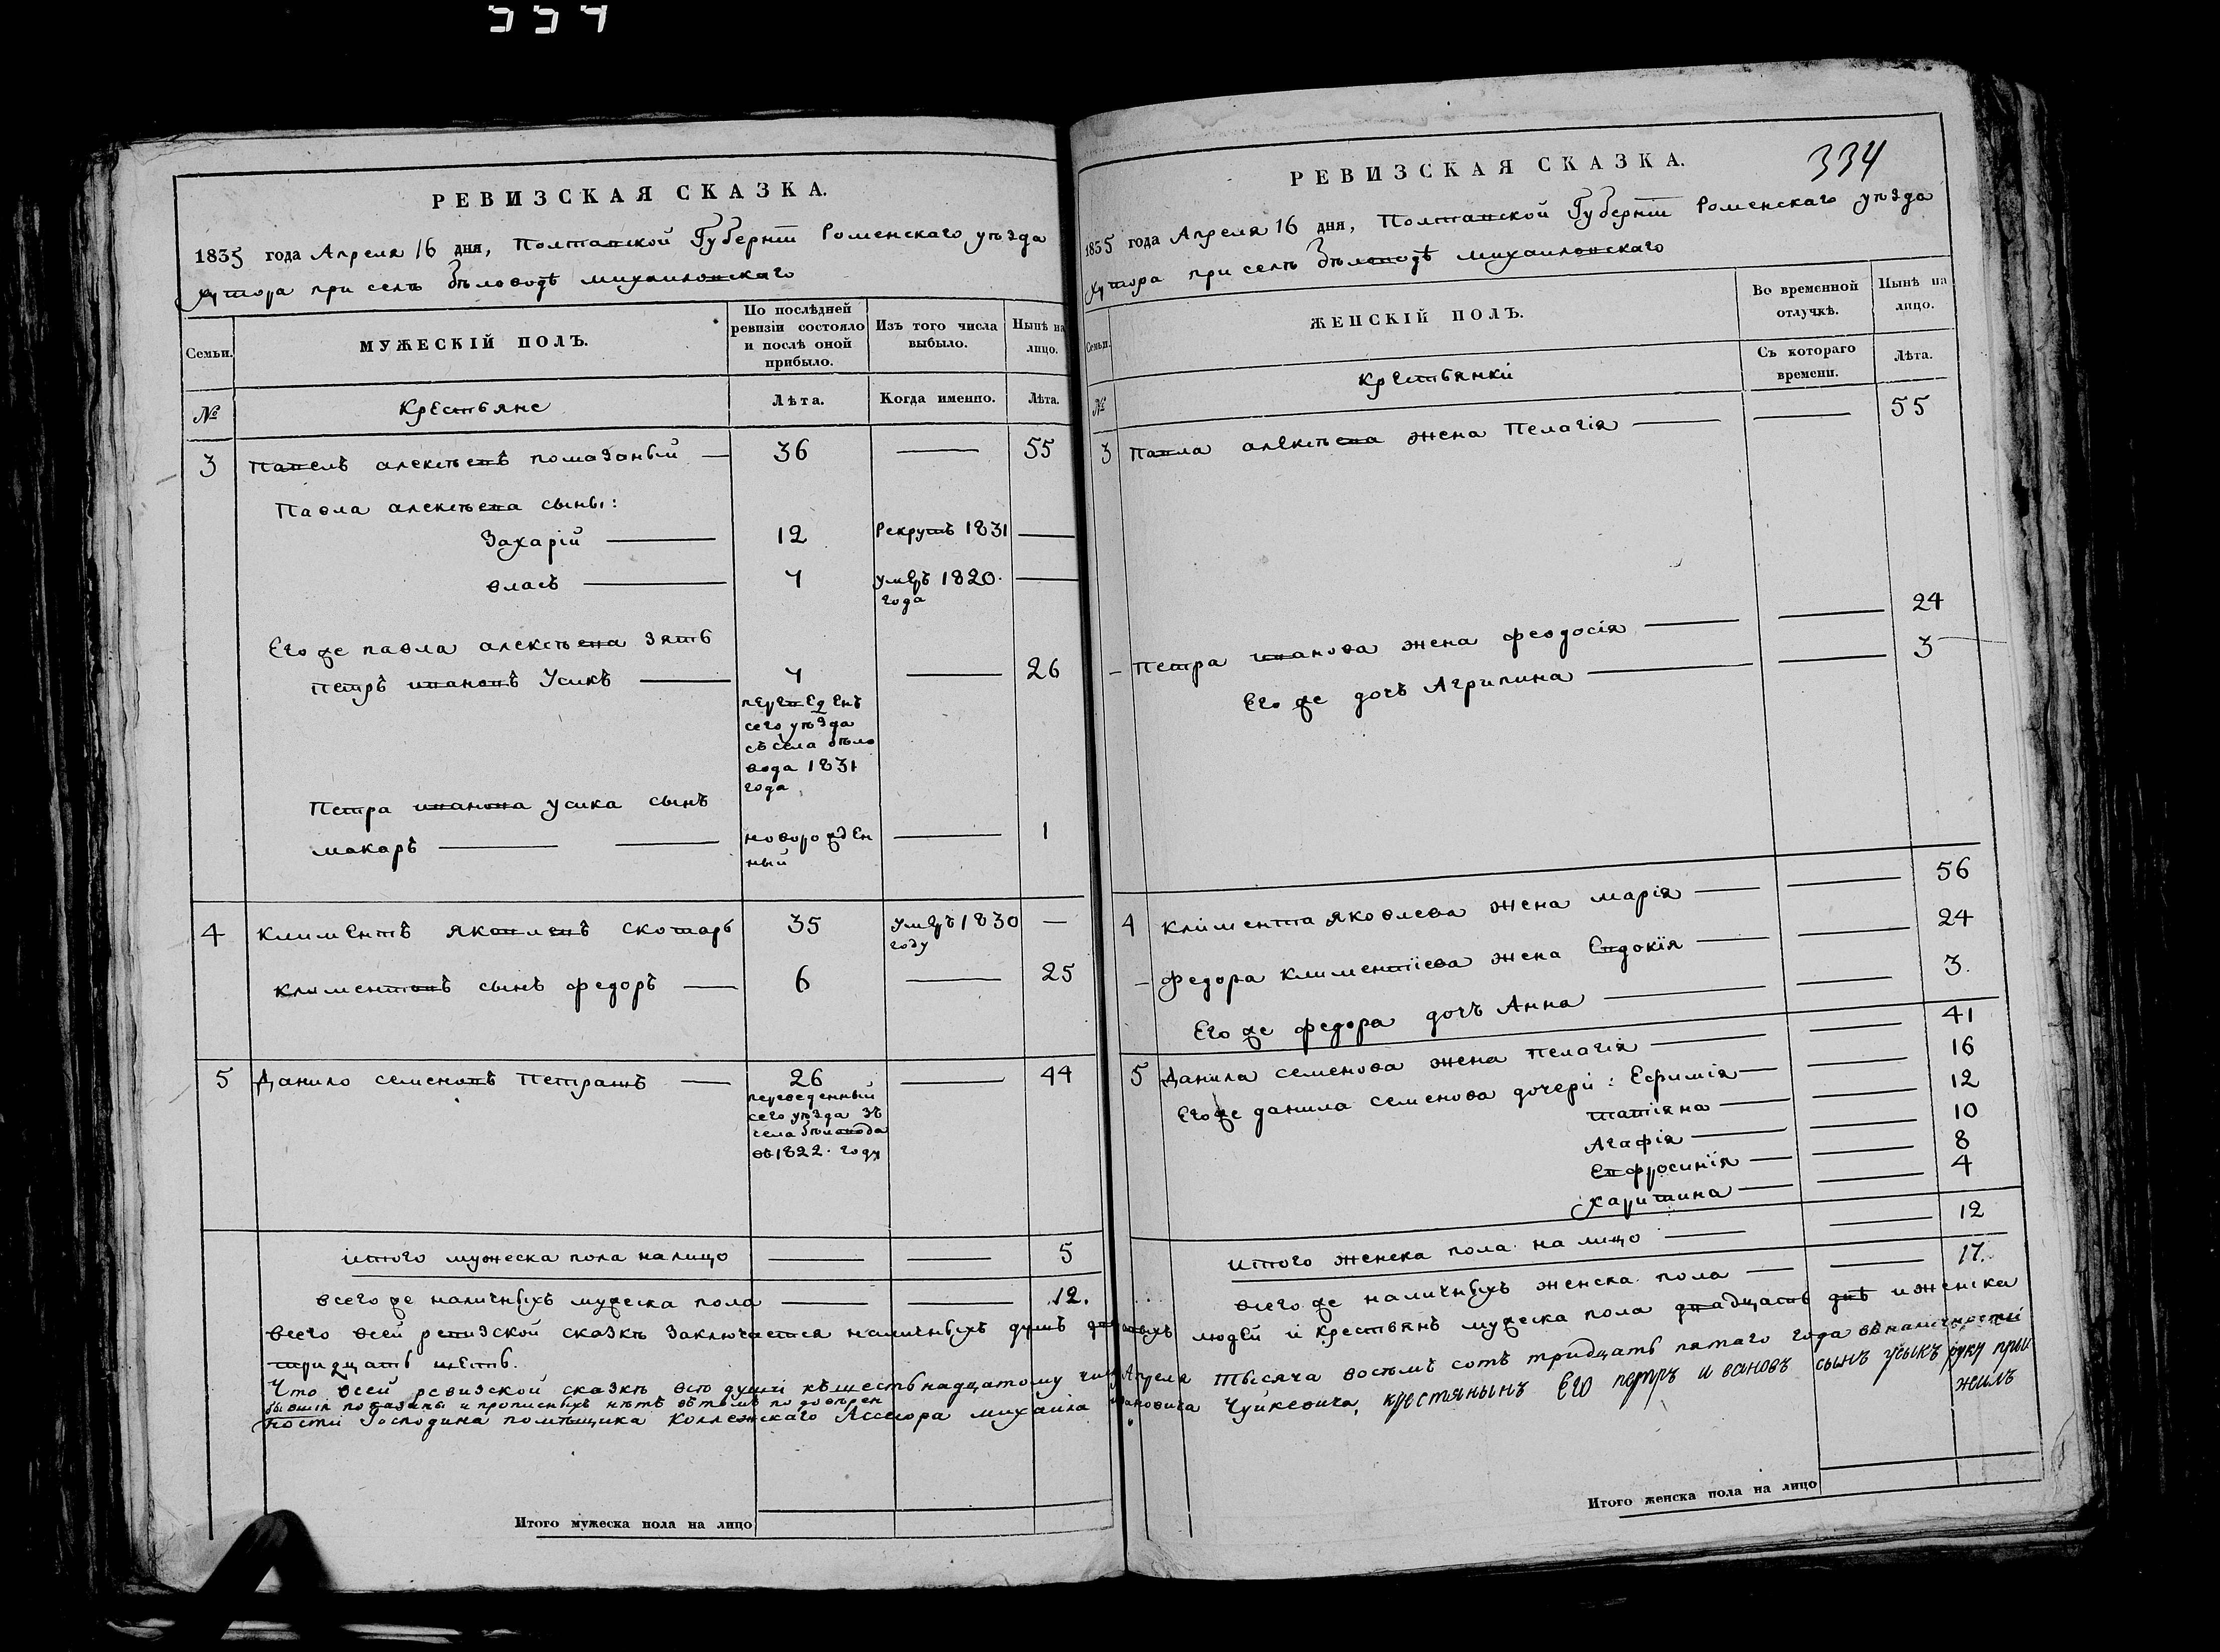 334
РЕВИЗСКАЯ СКАЗКА.
1835 года Апреля 16 дня, Полтавской Губерніи Роменскаго уѣзда
хутора при селѣ бѣловодѣ михаиловскаго
Семьи.
МУЖЕСКІЙ ПОЛЪ.
По послѣдней ревизіи состояло и послѣ оной прибыло.
Изъ того числа выбыло.
Нынѣ на лицо.
№
Крестьяне
Лѣта.
Когда именно.
Лѣта.
3 Павелъ алексѣевъ помазаный — 36 — 55
Павла алексѣева сыны:
Захарій — 12 Рекрутъ 1831 —
власъ — 4 умеръ 1820. года —
Его же павла алексѣева зять
петръ ивановъ Усикъ — 4 — 26
переведенъ
сего уѣзда
съ села бѣло
вода 1831
года
Петра иванова усика сынъ
макаръ — новорожден — 1
ный
4 климентъ яковлевъ скотарь 35 Умеръ 1830 году —
климентовъ сынъ федоръ — 6 — 25
5 Данило семеновъ Петрашъ — 26 — 44
переведенный
сего уѣзда зъ
села бѣловода
въ 1822. году
итого мужеска пола налицо — — 5
всего же наличныхъ мужеска пола — — 12.
РЕВИЗСКАЯ СКАЗКА.
334
1835 года Апреля 16 дня, Полтавской Губерніи Роменскаго уѣзда
хутора при селѣ бѣловодѣ михаиловскаго
Семьи.
ЖЕНСКІЙ ПОЛЪ.
Во временной отлучкѣ.
Нынѣ на лицо.
№
крестьянки
Съ котораго времени.
Лѣта.
3 Павла алексѣева жена Пелагія — — 55
- Петра иванова жена феодосія — — 24
Его же дочъ Агрипина — — 3
4 климента яковлева жена марія — — 56
- федора климентіева жена Евдокія — — 24
Его же федора дочъ Анна — — 3.
5 Данила семенова жена пелагія — — 41
Его же данила семенова дочери: Ефимія — — 16
татіяна — — 12
Агафія — — 10
Евфросинія — — 8
харитина — — 4
итого женска пола на лицо — — 12
всего же наличныхъ женска пола — — 17.
всего всей ревизской сказкѣ заключается наличныхъ душъ людей и крестьянъ мужеска пола двадцать двѣ и женска
тридцать шесть.
Что всей ревизской сказкѣ всѣ души къ шестьнадцатому числу Апреля тысяча восемъ сотъ тридцать пятаго года въ наличности
бывшія показаны и прописныхъ нѣтъ въ томъ по доверен
ности Господина помѣщика Коллежскаго Ассесора михаила ивановича Чуйкевича, крестянынъ Его петръ ивановъ сынъ усыкъ руку пры
жилъ
Итого мужеска пола на лицо
Итого женска пола на лицо